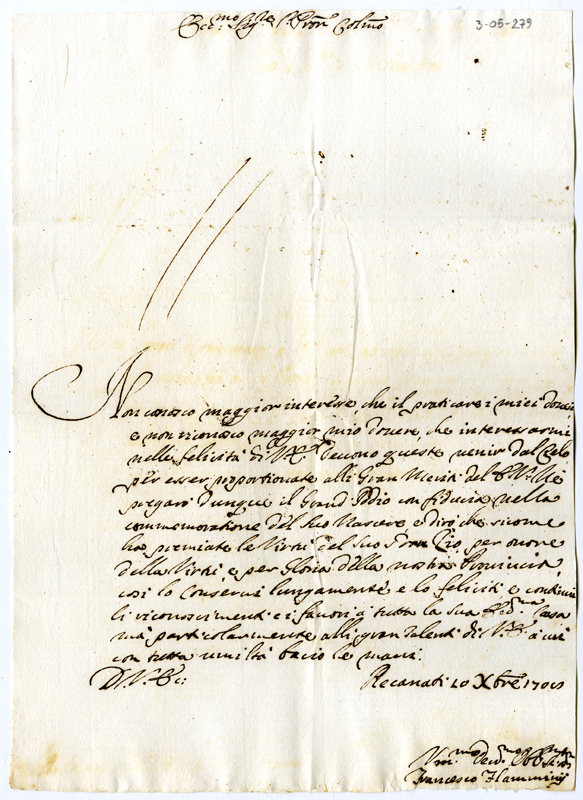 Ecc:mo Sig.re e Pron Colmo
3-05-279
Non conosco maggior interesse, che il praticare i miei doveri
e non riconosco maggior mio dovere, che interessarmi
nelle felicità di V. Ecc. Decono queste venir dal Cielo
per esser proportionate alli Gran Meriti del
pregarò dunque il Grand Iddio con fiducia nella
commemoratione del suo Nascere e dirò che sicome
ha premiate le Virtù del suo Gran Zio per onore
della Virtù, e per Gloria della nostra Provincia
così lo conservi lungamente e lo feliciti e continui
li riconoscimenti e i favori a tutta la sua Casa
ma particolarmente alli gran Talenti di V. E. a cui
con tutta umiltà bacio le mani.
D. V. Ec:
Recanati 20 Xbre
Francesco Flamminij